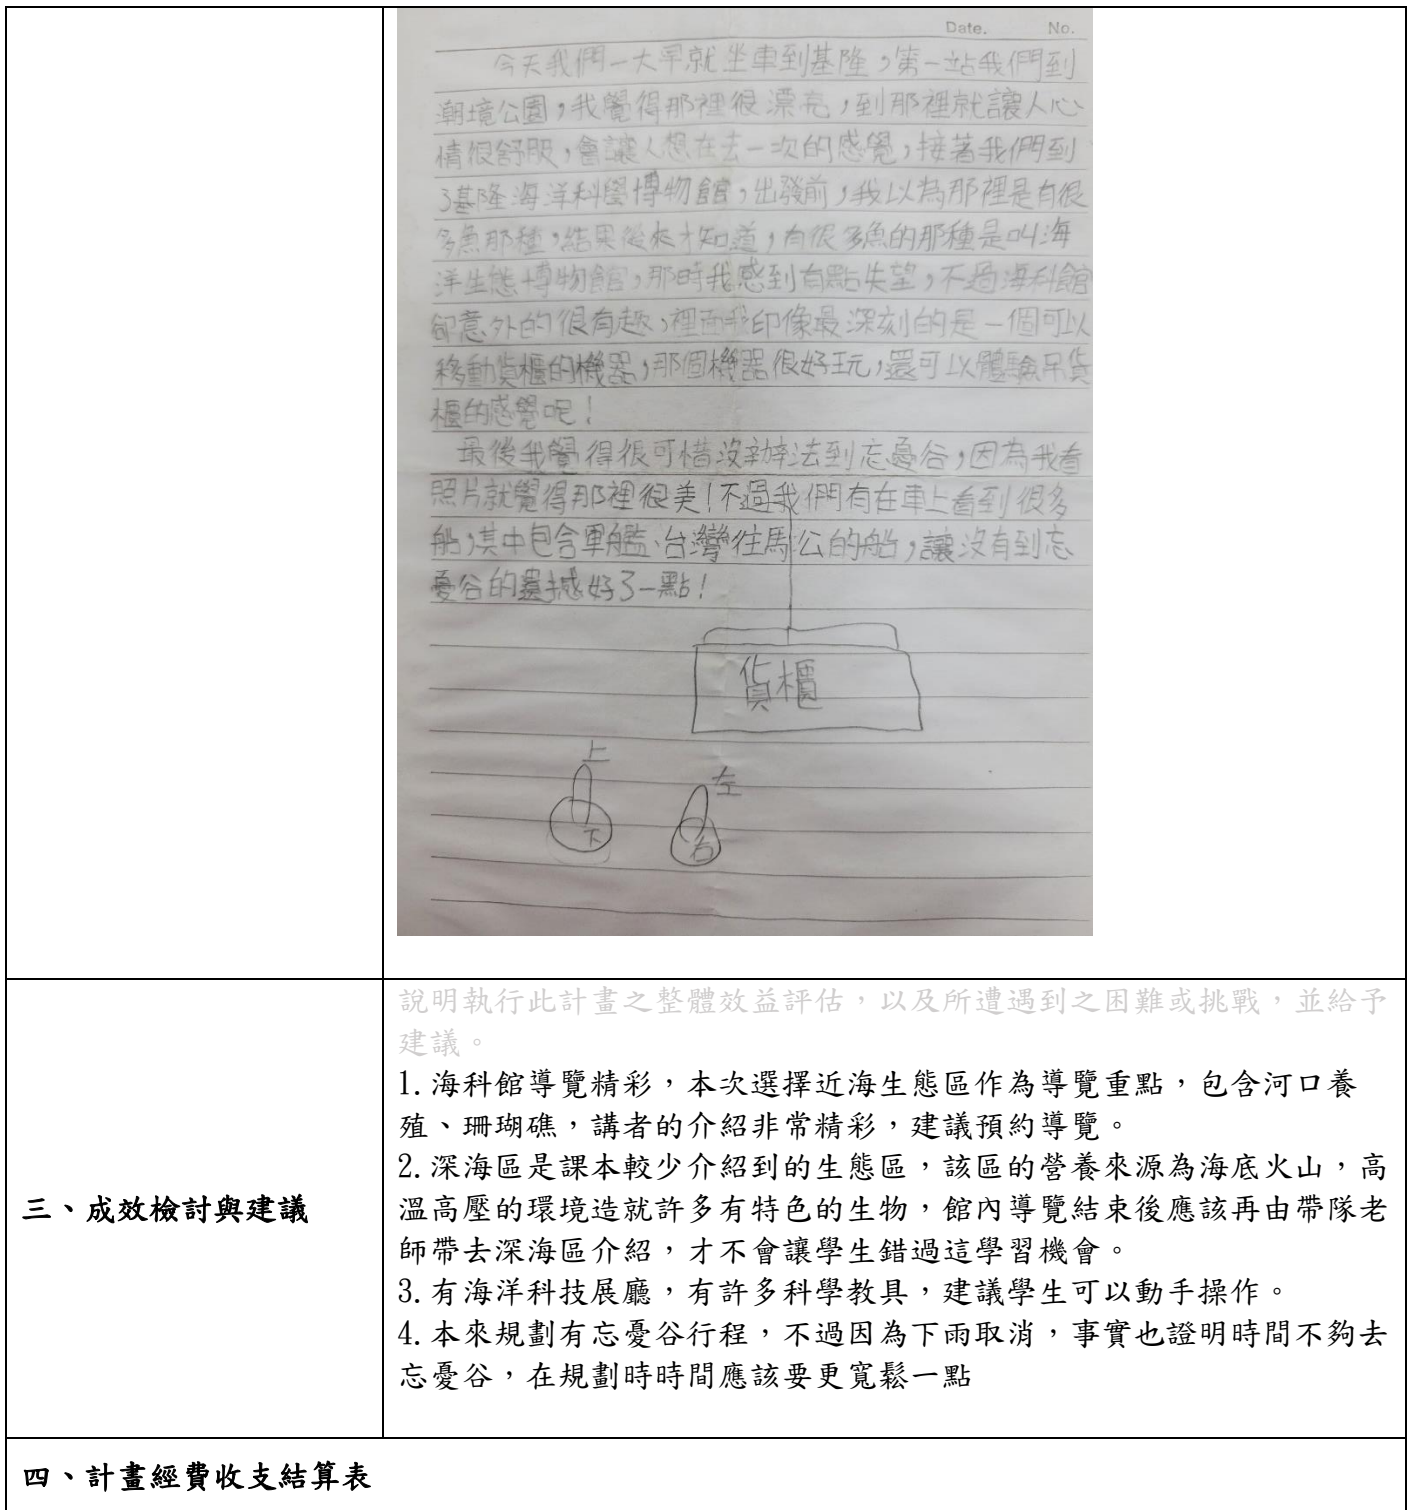 Date. No.
今天我們一大早就坐車到基隆，第一站我們到
潮境公園，我覺得那裡很漂亮，到那裡就讓人心
情很舒服，會讓人想在去一次的感覺，接著我們到
了基隆海洋科學博物館，出發前，我以為那裡是有很
多魚那種，結果後來才知道，有很多魚的那種是叫海
洋生態博物館，那時我感到有點失望，不過海科館
卻意外的很有趣，裡面我印像最深刻的是一個可以
移動貨櫃的機器，那個機器很好玩，還可以體驗吊貨
櫃的感覺呢！
最後我覺得很可惜沒辦法到忘憂谷，因為我看
照片就覺得那裡很美！不過我們有在車上看到很多
船，其中包含軍艦、台灣往馬公的船，讓沒有到忘
憂谷的遺憾好了一點！
貨櫃
上
左
下
右
說明執行此計畫之整體效益評估，以及所遭遇到之困難或挑戰，並給予
建議。
1.海科館導覽精彩，本次選擇近海生態區作為導覽重點，包含河口養
殖、珊瑚礁，講者的介紹非常精彩，建議預約導覽。
2.深海區是課本較少介紹到的生態區，該區的營養來源為海底火山，高
三、成效檢討與建議
溫高壓的環境造就許多有特色的生物，館內導覽結束後應該再由帶隊老
師帶去深海區介紹，才不會讓學生錯過這學習機會。
3.有海洋科技展廳，有許多科學教具，建議學生可以動手操作。
4.本來規劃有忘憂谷行程，不過因為下雨取消，事實也證明時間不夠去
忘憂谷，在規劃時時間應該要更寬鬆一點
四、計畫經費收支結算表